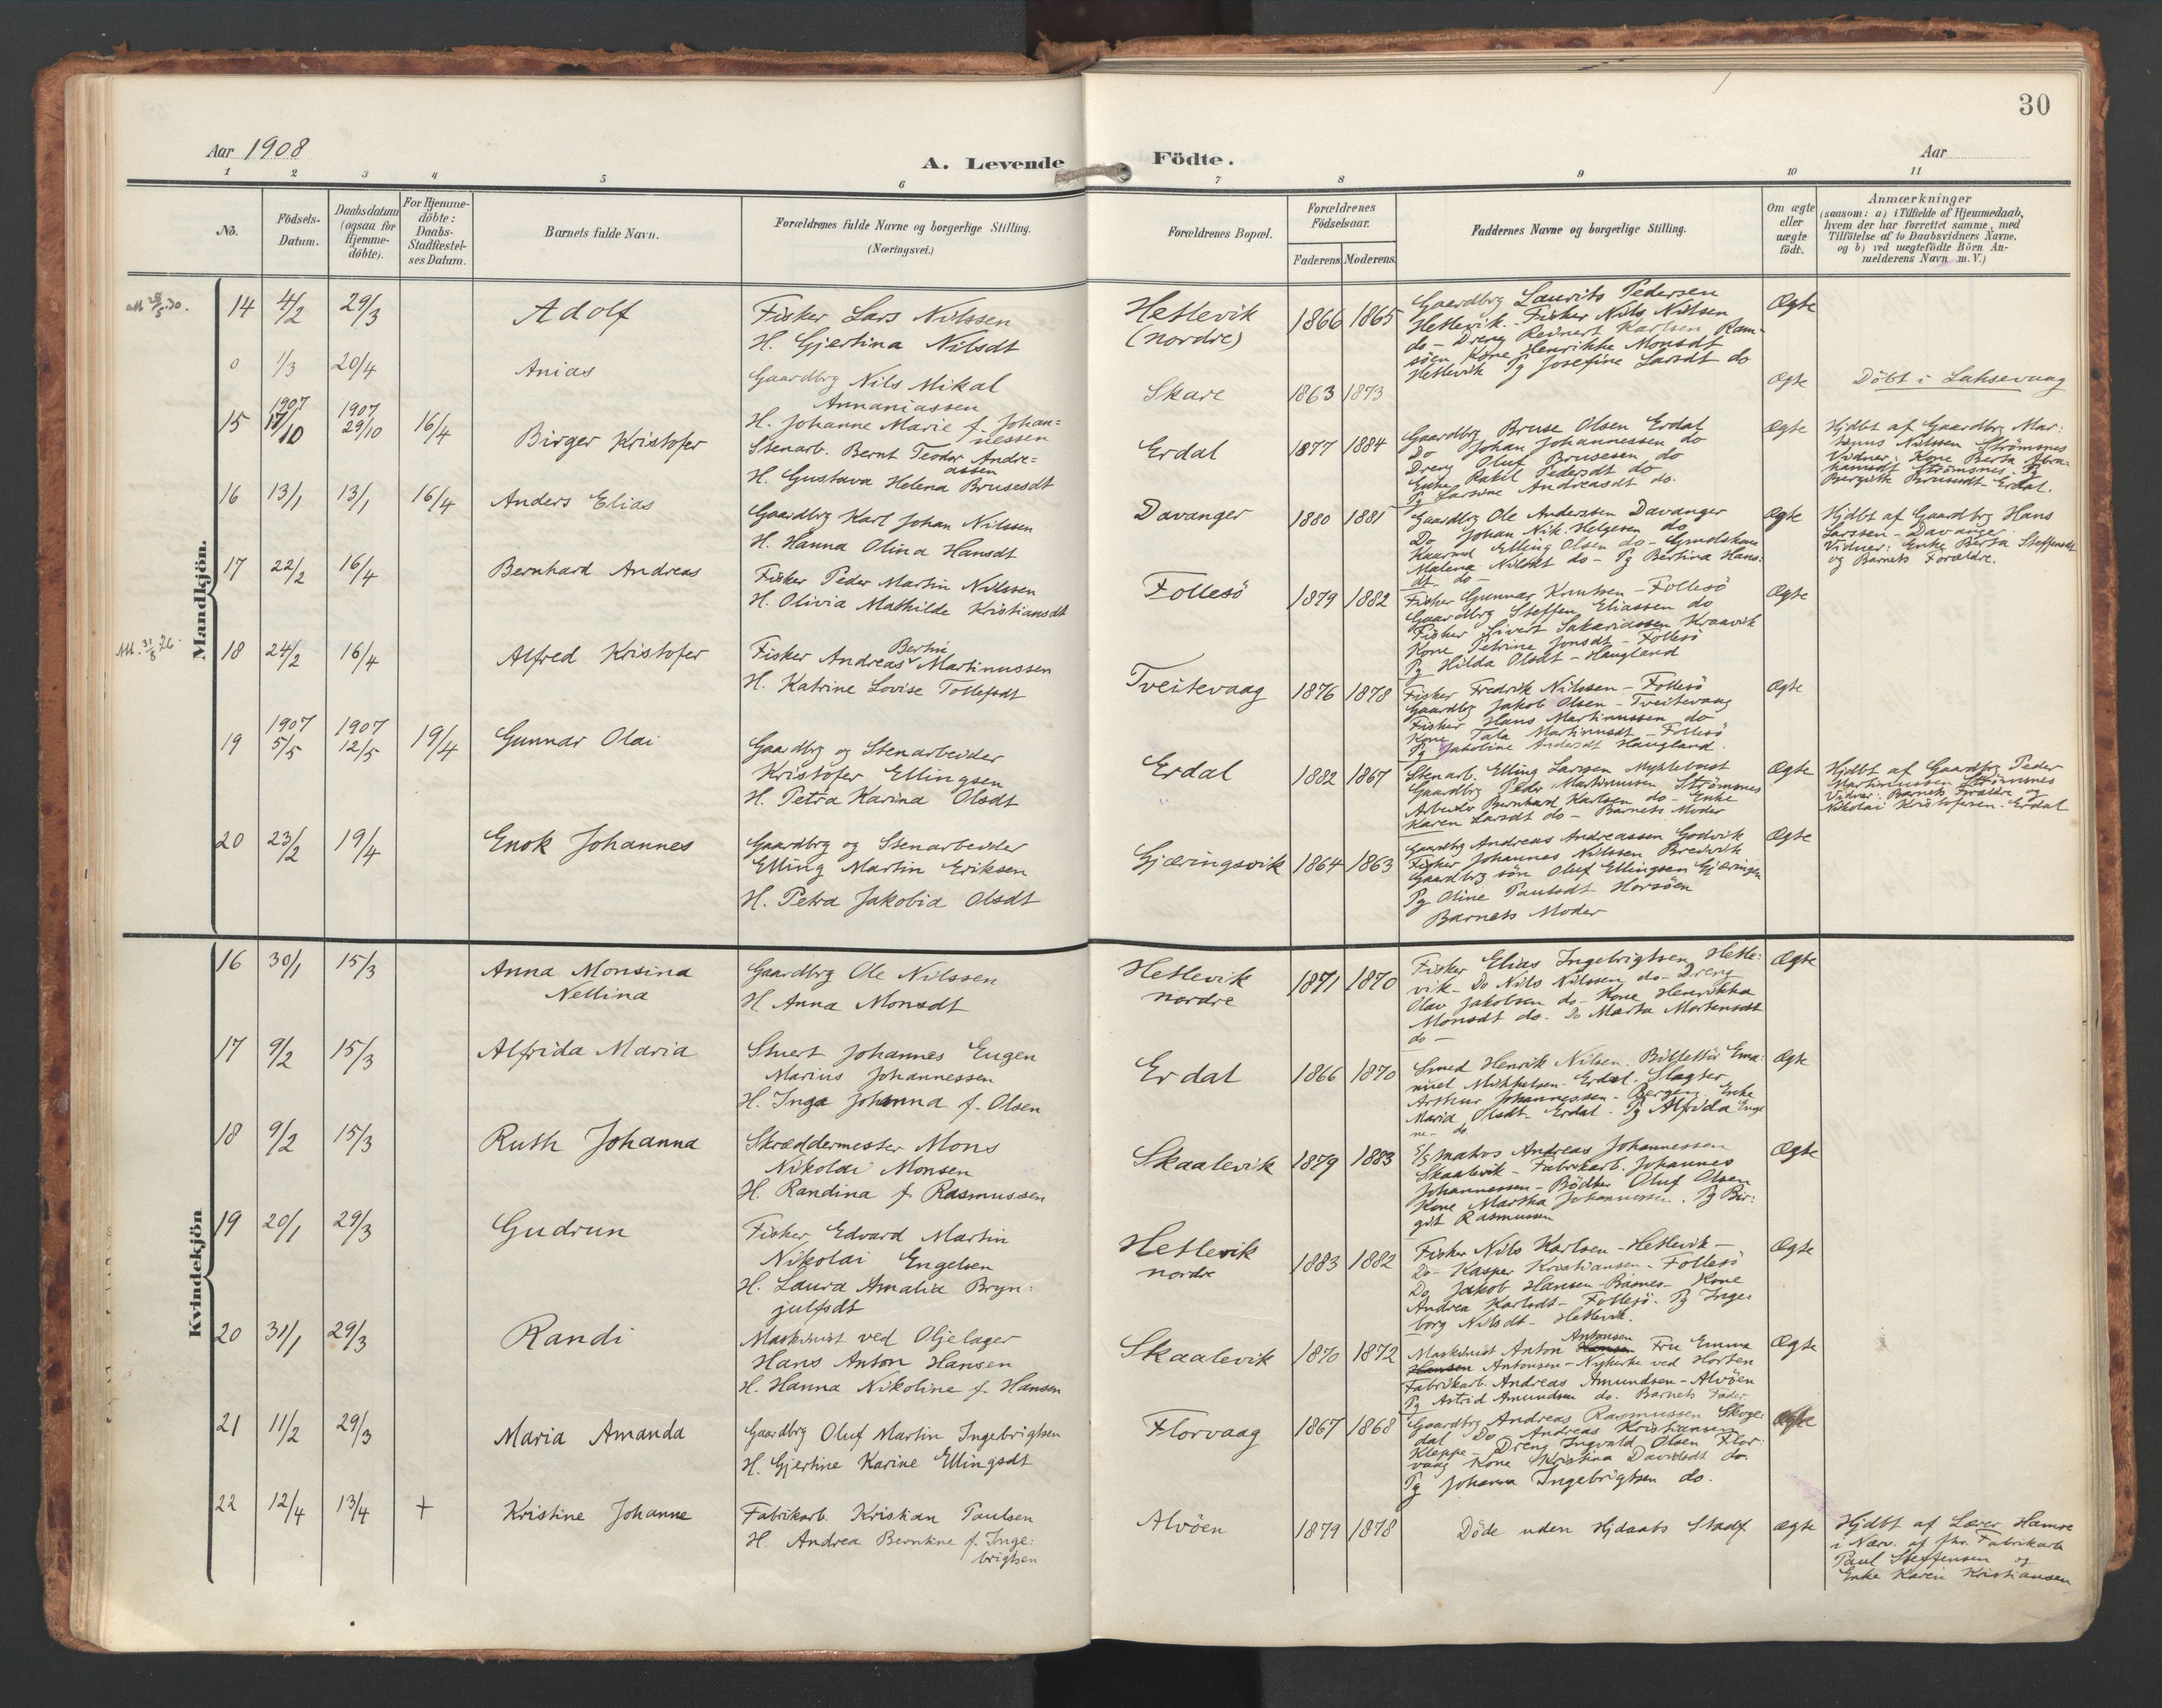 30
Aar 1908
A. Levende Födte.
Aar
1 2 3 4 5 6 7 8 9 10 11
No.
Födsels-Datum.
Daabsdatum (ogsaa for Hjemme-döbte).
For Hjemme-döbte: Daabs-Stadfæstel-ses Datum.
Barnets fulde Navn.
Forældrenes fulde Navne og borgerlige Stilling.
(Næringsvei.)
Forældrenes Bopæl.
Forældrenes Födselsaar.
Faderens Moderens
Faddernes Navne og borgerlige Stilling.
Om ægte eller uægte födt.
Anmærkninger
(saasom: a) i Tilfælde af Hjemmedaab,
hvem der har forrettet samme, med
Tilföielse af to Daabsvidners Navne,
og b) ved uægtefödte Börn An-
melderens Navn m. V.)
Mandkjön.
14 4/2 29/3 Adolf
Fisker Lars Nilssen
H. Gjertina Nilsdt
Hetlevik
(nordre)
1866 1865
Gaardbrg Laurits Pedersen
Hetlevik - Fisker Nils Nilsen
do - Dreng Reinert Karlsen Ram-
söen Kone Henrikke Monsdt
Hetlevik Pg Josefine Larsdt do
Ægte
0 1/3 20/4 Anias
Gaardbrg Nils Mikal
Annaniassen
H. Johanne Marie f. Johan=
nessen
Skare
1863 1873
Ægte
Döbt i Laksevaag
15 1907 17/10 1907 29/10 16/4 Birger Kristofer
Stenarb. Bernt Teodor Andre=
assen
H. Gustava Helena Brusesdt
Erdal
1877 1884
Gaardbrg Bruse Olsen Erdal
Do Johan Johannessen do
Dreng Oluf Brusesen do
Enke Rakel Pedersdt do
Pg Larsine Andreasdt do.
Ægte
Hjdbt af Gaardbrg Mar:
tinus Nilssen Strömsnes
Vidner: Kone Berta Abra=
hamsdt Strömsnes. Pg
Bergitte Brunsdt - Erdal.
16 13/1 13/1 16/4 Anders Elias
Gaardbrg Karl Johan Nilssen
H. Hanna Olina Hansdt
Davanger
1880 1881
Gaardbrg Ole Anderssen Davanger
Do Johan Nik. Helgesen do
Elling Olsen do -
Malena Nilsdt do - Pg Bertina Hans:
dt do -
Ægte
Hjdbt af Gaardbrg Hans
Larssen - Davanger
Vidner: Enke Berta Steffensdt
og Barnets Forældre.
17 22/2 16/4 Bernhard Andreas
Fisker Peder Martin Nilssen
H. Olivia Mathilde Kristiansdt
Follesö
1879 1882
Fisker Gunnar Knutsen - Follesö
Gaardbrg Steffen Eliassen do
Fisker Sivert Sakariassen Kraavik
Kone Petrine Jonsdt - Follesö
Pg Hilda Olsdt - Haugland
Ægte
18 24/2 16/4 Alfred Kristofer
Bertin
Fisker Andreas Martinussen
H. Katrine Lovise Tollefsdt
Tveitevaag
1876 1878
Fisker Fredrik Nilssen - Follesö
Gaardbrg Jakob Olsen - Tveitevaag
Fisker Hans Martinussen do
Kone Tala Martinusdt - Follesö
Pg Jakoline Andersdt Haugland.
Ægte
19 1907 5/5 1907 12/5 19/4 Gunnar Olai
Gaardbrg og Stenarbeider
Kristofer Ellingsen
H. Petra Karina Olsdt
Erdal
1882 1867
Stenarb. Elling Larssen Myklebust
Gaardbrg Peder Martinussen Strömsnes
Arbeider Bernhard Karlsen do - Enke
Karen Larsdt do - Barnets Moder
Ægte
Hjdbt af Gaardbrg Peder
Martinussen Strömsnes
Vidner: Barnets Forældre og
Nikolai Kristofersen - Erdal
20 23/2 19/4 Enok Johannes
Gaardbrg og Stenarbeider
Elling Martin Eriksen
H. Petra Jakobia Olsdt
Gjæringsvik
1864 1863
Gaardbrg Andreas Andreassen Godvik
Fisker Johannes Nilssen Bredvik
Gaardbrg sön Oluf Ellingsen
Pg Oline Paulsdt Horsöen
Barnets Moder
Ægte
Kvindekjön
16 30/1 15/3 Anna Monsina
Nellina
Gaardbrg Ole Nilssen
H. Anna Monsdt
Hetlevik
nordre
1871 1870
Fisker Elias Ingebrigtsen Hetle:
vik - Do Nils Nilssen do - Dreng
Olav Jakobsen do - Kone Henrikka
Monsdt do. Do Marta Mortensdt
do -
Ægte
17 9/2 15/3 Alfrida Maria
Stuert Johannes Eugen
Marius Johannessen
H. Inga Johanna f. Olsen
Erdal
1866 1870
Smed Henrik Nilsen. Billettör Ema:
nuel Mikkelsen - Erdal. Slagter
Arthur Johannessen - Bergen. Enke
Maria Olsdt - Erdal. Pg Alfrida Enge
ne - do.
Ægte
18 9/2 15/3 Ruth Johanna
Skræddermester Mons
Nikolai Monsen
H. Randina f. Rasmussen
Skaalevik
1879 1883
Matros Andreas Johannessen
Skaalevik - Fabrikarb. Johannes
Johannessen - Bödker Oluf Olsen
Kone Martha Johannessen. Pg Bir:
git Rasmussen
Ægte
19 20/1 29/3 Gudrun
Fisker Edvard Martin
Nikolai Engelsen
H. Laura Amalia Bryn:
julfsdt
Hetlevik
nordre
1883 1882
Fisker Nils Karlsen - Hetlevik -
Do - Kasper Kristiansen - Follesö
Do Jakob Hansen - Barnes - Kone
Andrea Karlsdt - Follesö. Pg Inge:
borg Nilsdt - Hetlevik.
Ægte
20 31/1 29/3 Randi
Maskinist ved Oljelager
Hans Anton Hansen
H. Hanna Nikoline f. Hansen
Skaalevik
1870 1872
Antonsen
Maskinist Anton Hansen Fru Emma
Hansen Antonsen - Nykirke ved Horten
Fabrikarb. Andreas Amundsen - Alvöen
Pg Astrid Amundsen do. Barnets Fader
Ægte
21 11/2 29/3 Maria Amanda
Gaardbrg Oluf Martin Ingebrigtsen
H. Gjertine Karine Ellingsdt
Florvaag
1867 1868
Gaardbrg Andreas Rasmussen Skoge:
dal Do Andreas Kristiansen
Kleppe - Dreng Ingvald Olsen Flor:
vaag Kone Kristina Davidsdt do
Pg Johanna Ingebrigtsen do.
Ægte
22 12/4 13/4 + Kristine Johanne
Fabrikarb. Kristian Paulsen
H. Andrea Berntine f. Inge:
brigtsen
Alvöen
1879 1878
Döde uden Hjdaabs Stadf
ægte
Hjdbt af Lærer Hamre
i Nærv. af fhv. Fabrikarb
Paul Steffensen og
Enke Karen Kristiansen